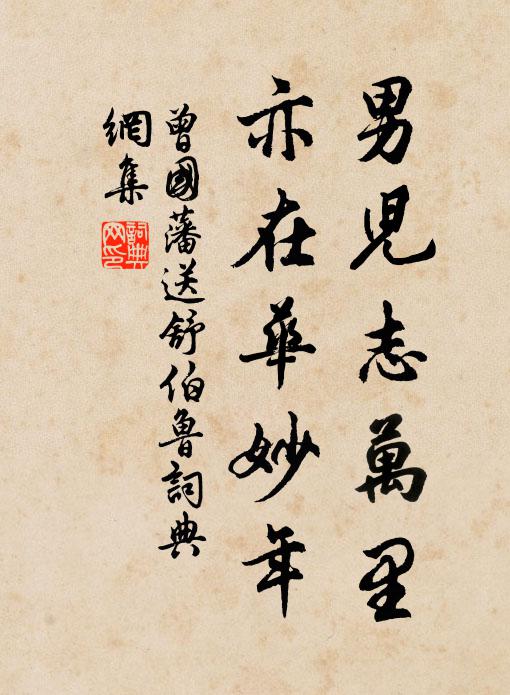 男兒志萬里
亦在華妙年
曾國藩送舒伯魯詞典
網集
詞典網印